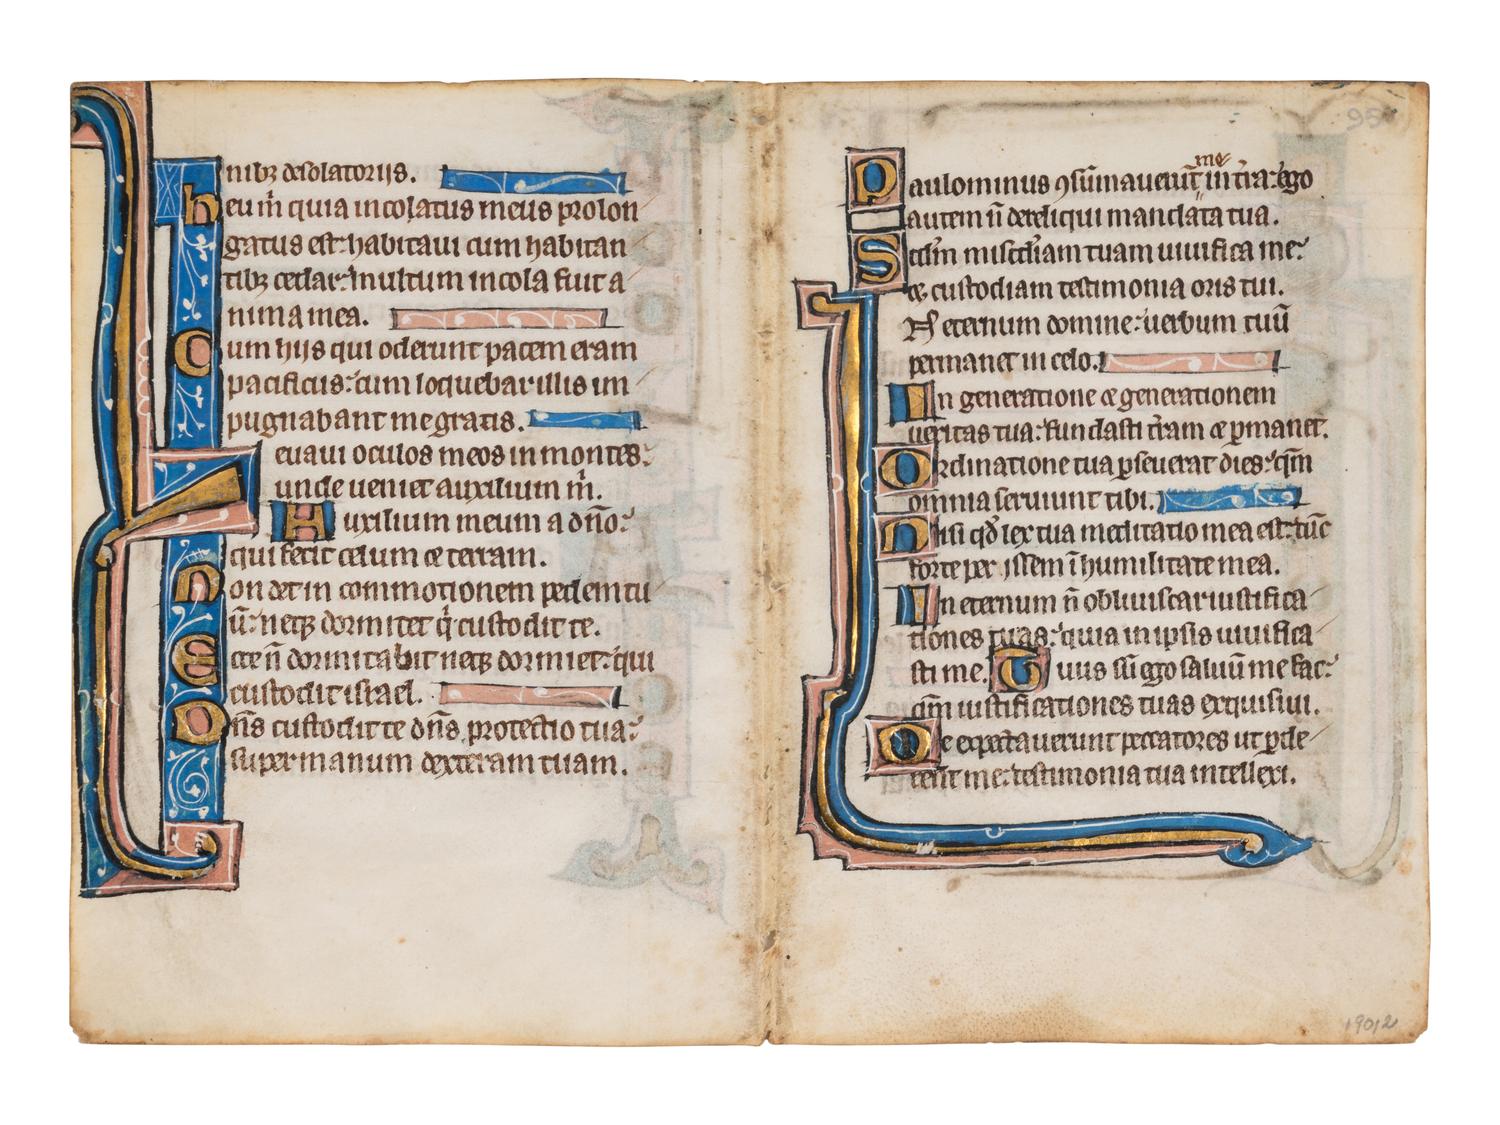 nibꝫ desolatoriis.
heu m̃ quia incolatus meus prolon
gatus est: habitaui cum habitan
tibꝫ cedar: multum incola fuit a
nima mea.
Cum hiis qui oderunt pacem eram
pacificus: cum loquebar illis im
pugnabant me gratis.
Leuaui oculos meos in montes:
unde ueniet auxilium m̃.
Auxilium meum a dño:
qui fecit celum ⁊ terram.
Non det in commotionem pedem tu
ũ: neqꝫ dormitet q̃ custodit te.
Ecce ñ dormitabit neqꝫ dormiet: qui
custodit israel.
Dñs custodit te dñs protectio tua:
super manum dexteram tuam.
95
me
Paulominus ꝯsũmauerũt in t̃ra: ego
autem ñ dereliqui mandata tua.
Scdm̃ miscd̃iam tuam uiuifica me:
⁊ custodiam testimonia oris tui.
In eternum domine: uerbum tuũ
permanet in celo.
In generatione ⁊ generationem
ueritas tua: fundasti t̃ram ⁊ ꝑmanet.
Ordinatione tua ꝑseuerat dies: qm̃
omnia seruiunt tibi.
Nisi qd̃ lex tua meditatio mea est: tũc
forte perissem ĩ humilitate mea.
In eternum ñ obliuiscar iustifica
tiones tuas: quia in ipsis uiuifica
sti me. Tuus sũ ego saluũ me fac:
qm̃ iustificationes tuas exquisiui.
Me expectauerunt peccatores ut ꝑde
rent me: testimonia tua intellexi.
19012